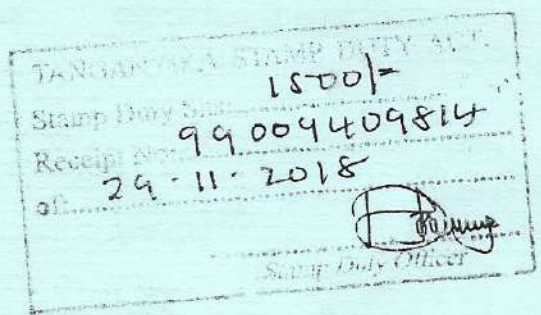 TANGANYIKA STAMP DUTY ACT.
Stamp Duty Shs: 1500/=
Receipt No: 99009409814
of: 29-11-2018
Stamp Duty Officer